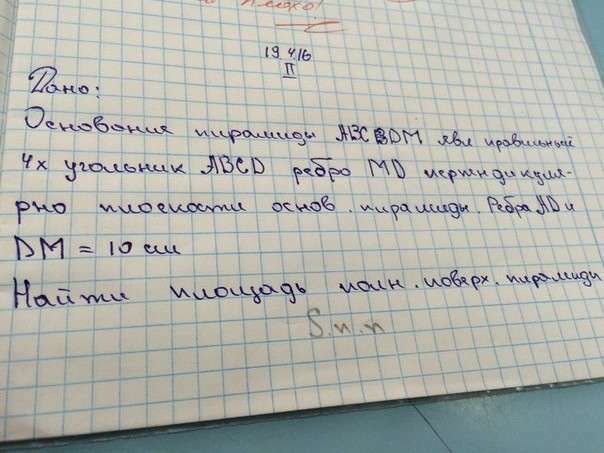 плохо!
19 4.16
II
Дано:
Основания пирамиды АВСВDM явл правильный
4х угольник ABCD ребро MD перпендикуля-
рно плоскости основ. пирамиды. Ребра AD и
DM = 10 см
Найти площадь полн. поверх. пирамиды
S.п.п